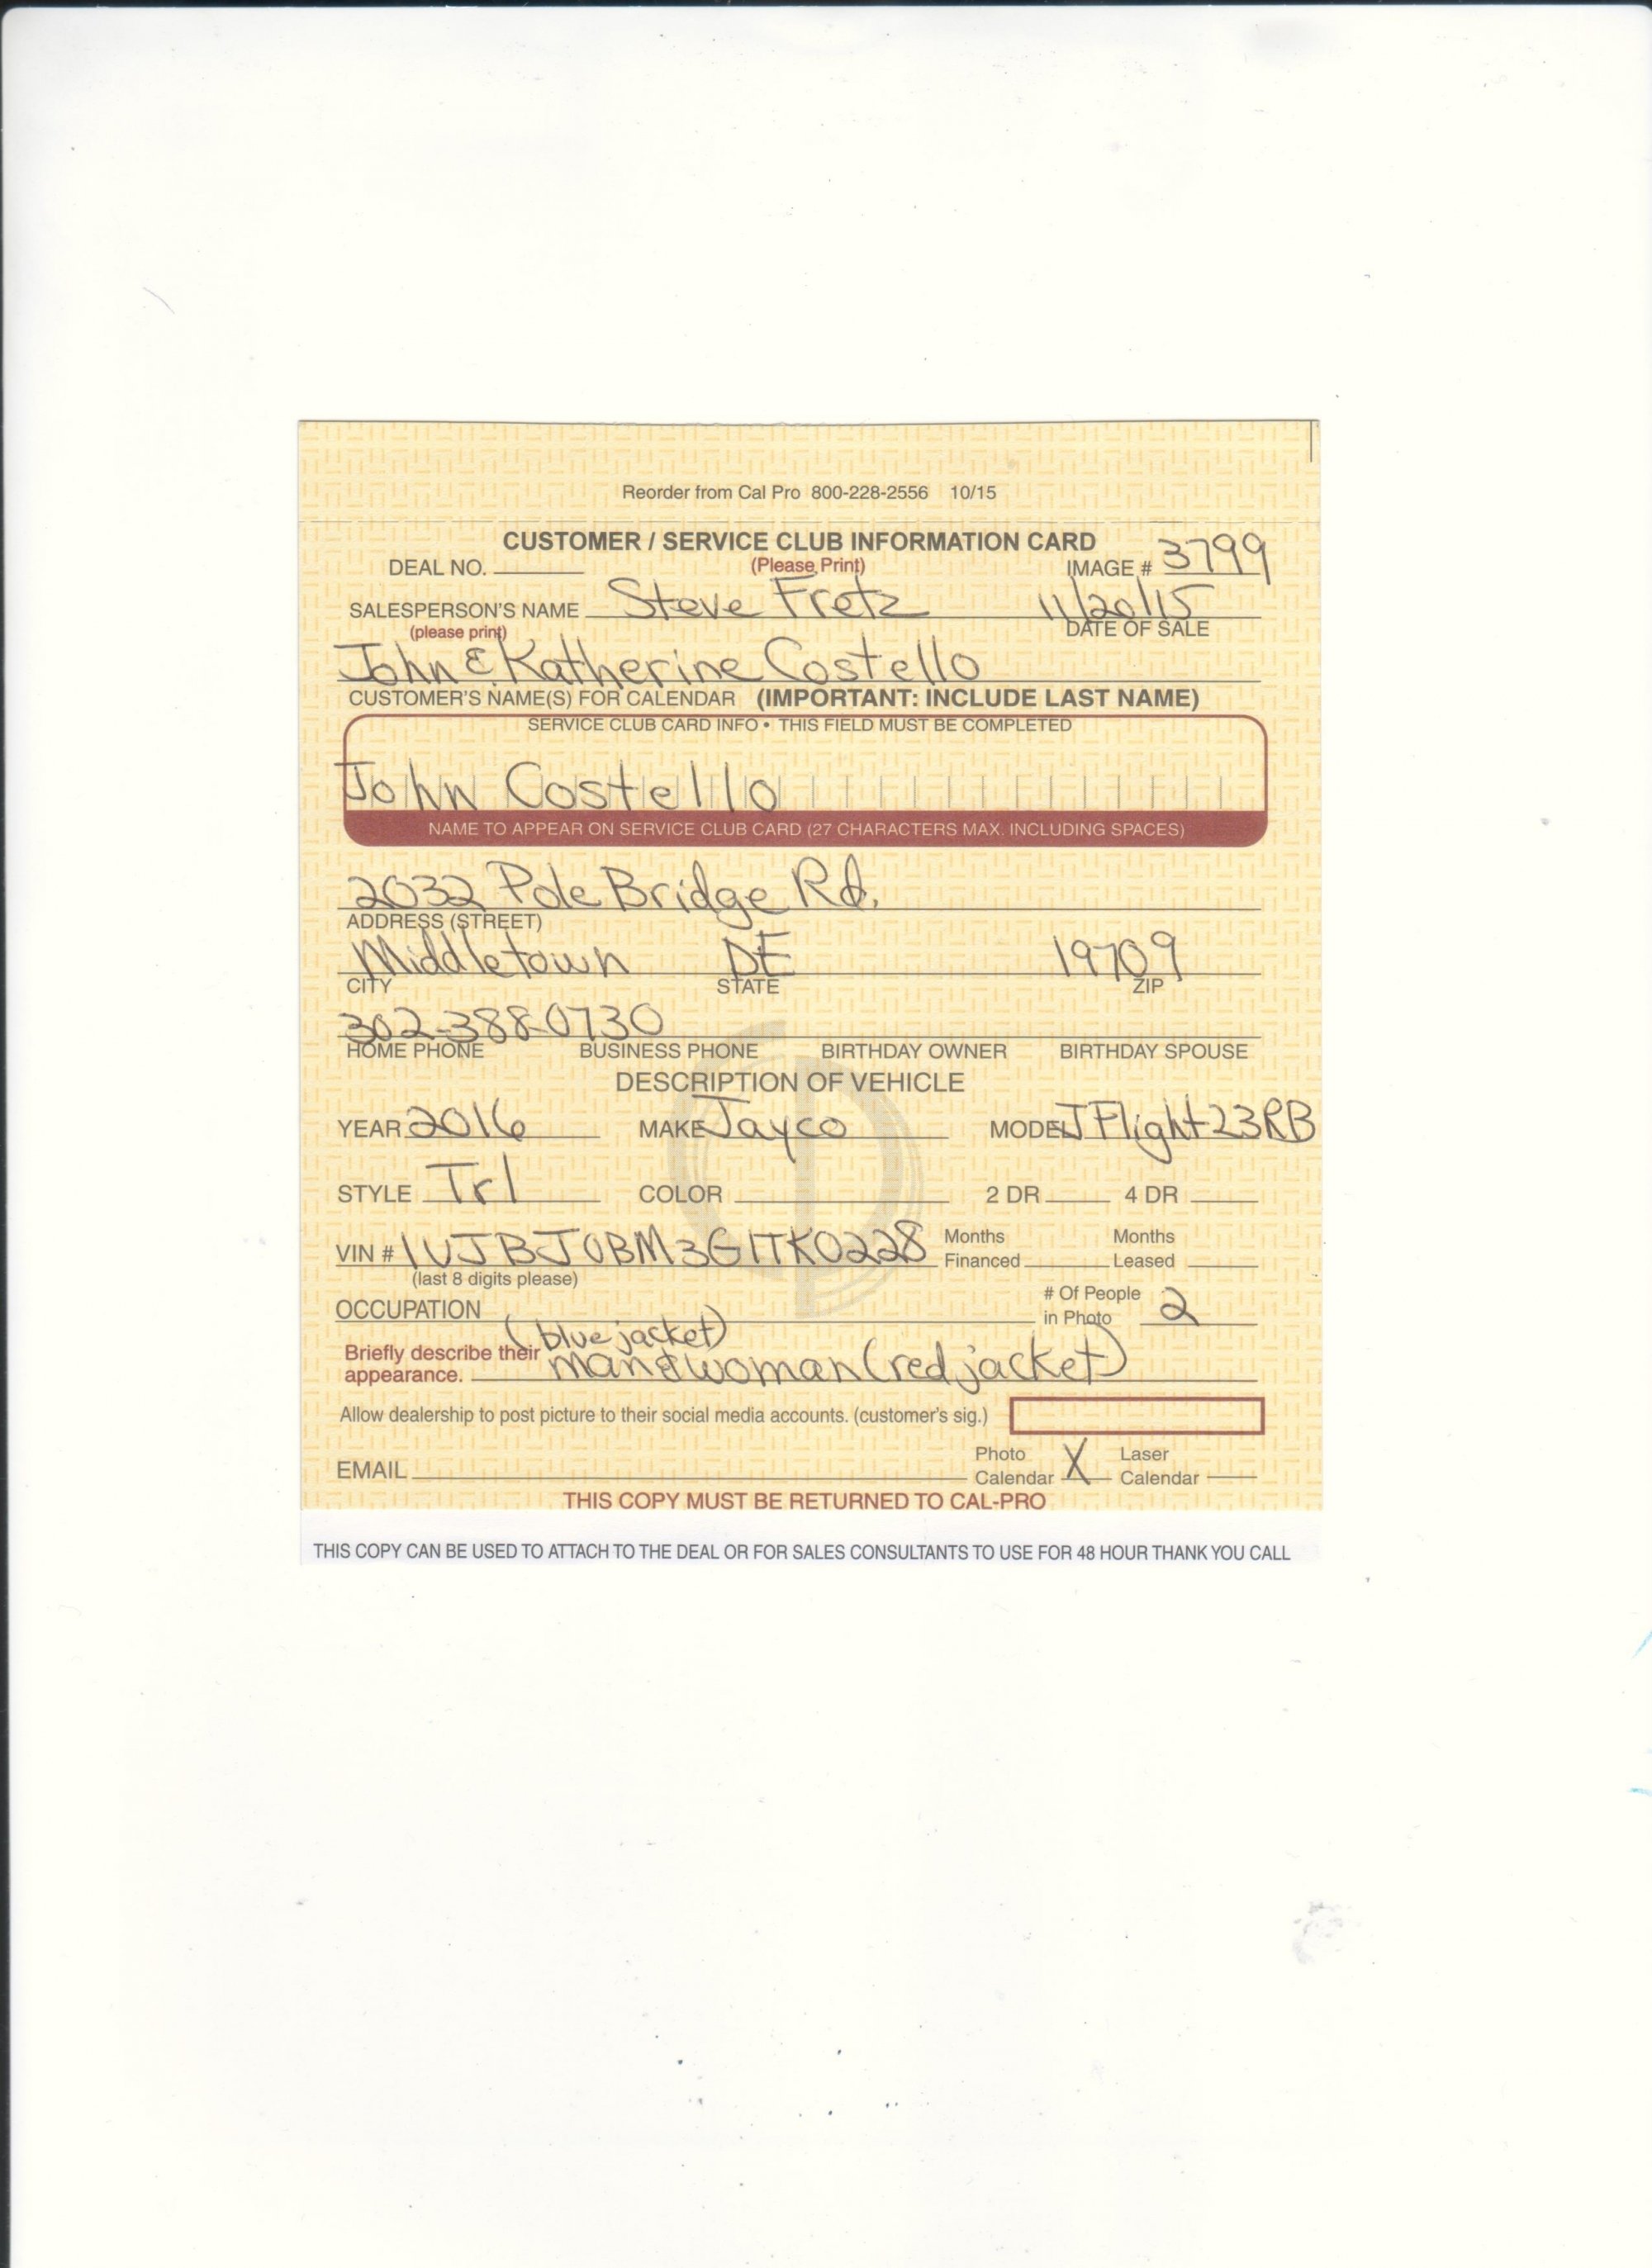 Reorder from Cal Pro 800-228-2556 10/15
CUSTOMER / SERVICE CLUB INFORMATION CARD
DEAL NO. (Please Print) IMAGE # 3799
SALESPERSON'S NAME Steve Fretz 11/20/15
(please print) DATE OF SALE
John & Katherine Costello
CUSTOMER'S NAME(S) FOR CALENDAR (IMPORTANT: INCLUDE LAST NAME)
SERVICE CLUB CARD INFO • THIS FIELD MUST BE COMPLETED
John Costello
NAME TO APPEAR ON SERVICE CLUB CARD (27 CHARACTERS MAX. INCLUDING SPACES)
2032 Pole Bridge Rd.
ADDRESS (STREET)
Middletown DE 19709
CITY STATE ZIP
302-388-0730
HOME PHONE BUSINESS PHONE BIRTHDAY OWNER BIRTHDAY SPOUSE
DESCRIPTION OF VEHICLE
YEAR 2016 MAKE Jayco MODEL J Flight 23RB
STYLE Trl COLOR 2 DR 4 DR
VIN # 1UJBJ0BM3G1TK0228 Months Financed Months Leased
(last 8 digits please)
OCCUPATION # Of People in Photo 2
(blue jacket)
Briefly describe their appearance. man & woman (red jacket)
Allow dealership to post picture to their social media accounts. (customer's sig.)
EMAIL Photo Calendar X Laser Calendar
THIS COPY MUST BE RETURNED TO CAL-PRO
THIS COPY CAN BE USED TO ATTACH TO THE DEAL OR FOR SALES CONSULTANTS TO USE FOR 48 HOUR THANK YOU CALL